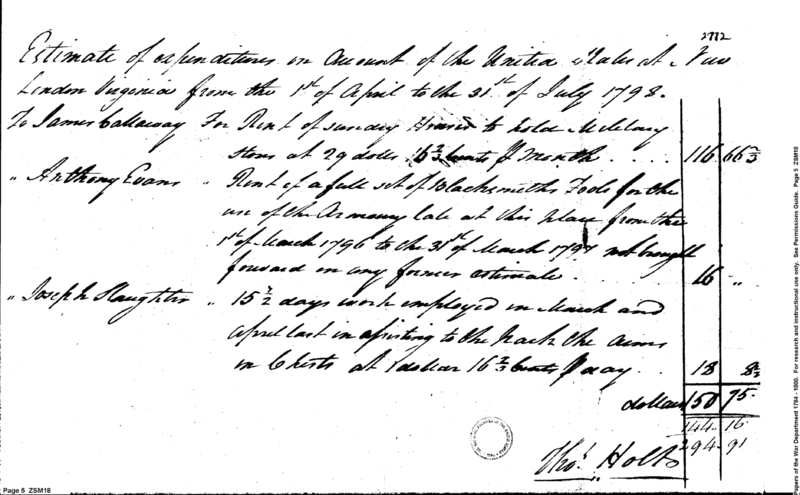 2772
Estimate of expenditures on Account of the United States at New
London Virginia from the 1st of April to the 31st of July 1798.
To James Callaway For Rent of sunday Houses to hold Military
stores at 29 dolls. 16 2/3 Cents ₱ month . . . . 116 66 2/3
" Anthony Evans " Rent of a full set of Blacksmiths Tools for the
use of the Armoury late at this place from the
1st of March 1796 to the 31st of March 1797 not brought
forward in any former estimate . . . . 16 "
" Joseph Slaughter " 15 1/2 days work employed in March and
April last in assisting to the pack the arms
in Chests at 1 dollar 16 2/3 Cents ₱ day . . 18 8 1/3
dollars 150 75.
144. 16
294. 91
Thos. Holt
Page 5 ZSM18
apers of the War Department 1784 - 1800. For research and instructional use only. See Permissions Guide. Page 5 ZSM18